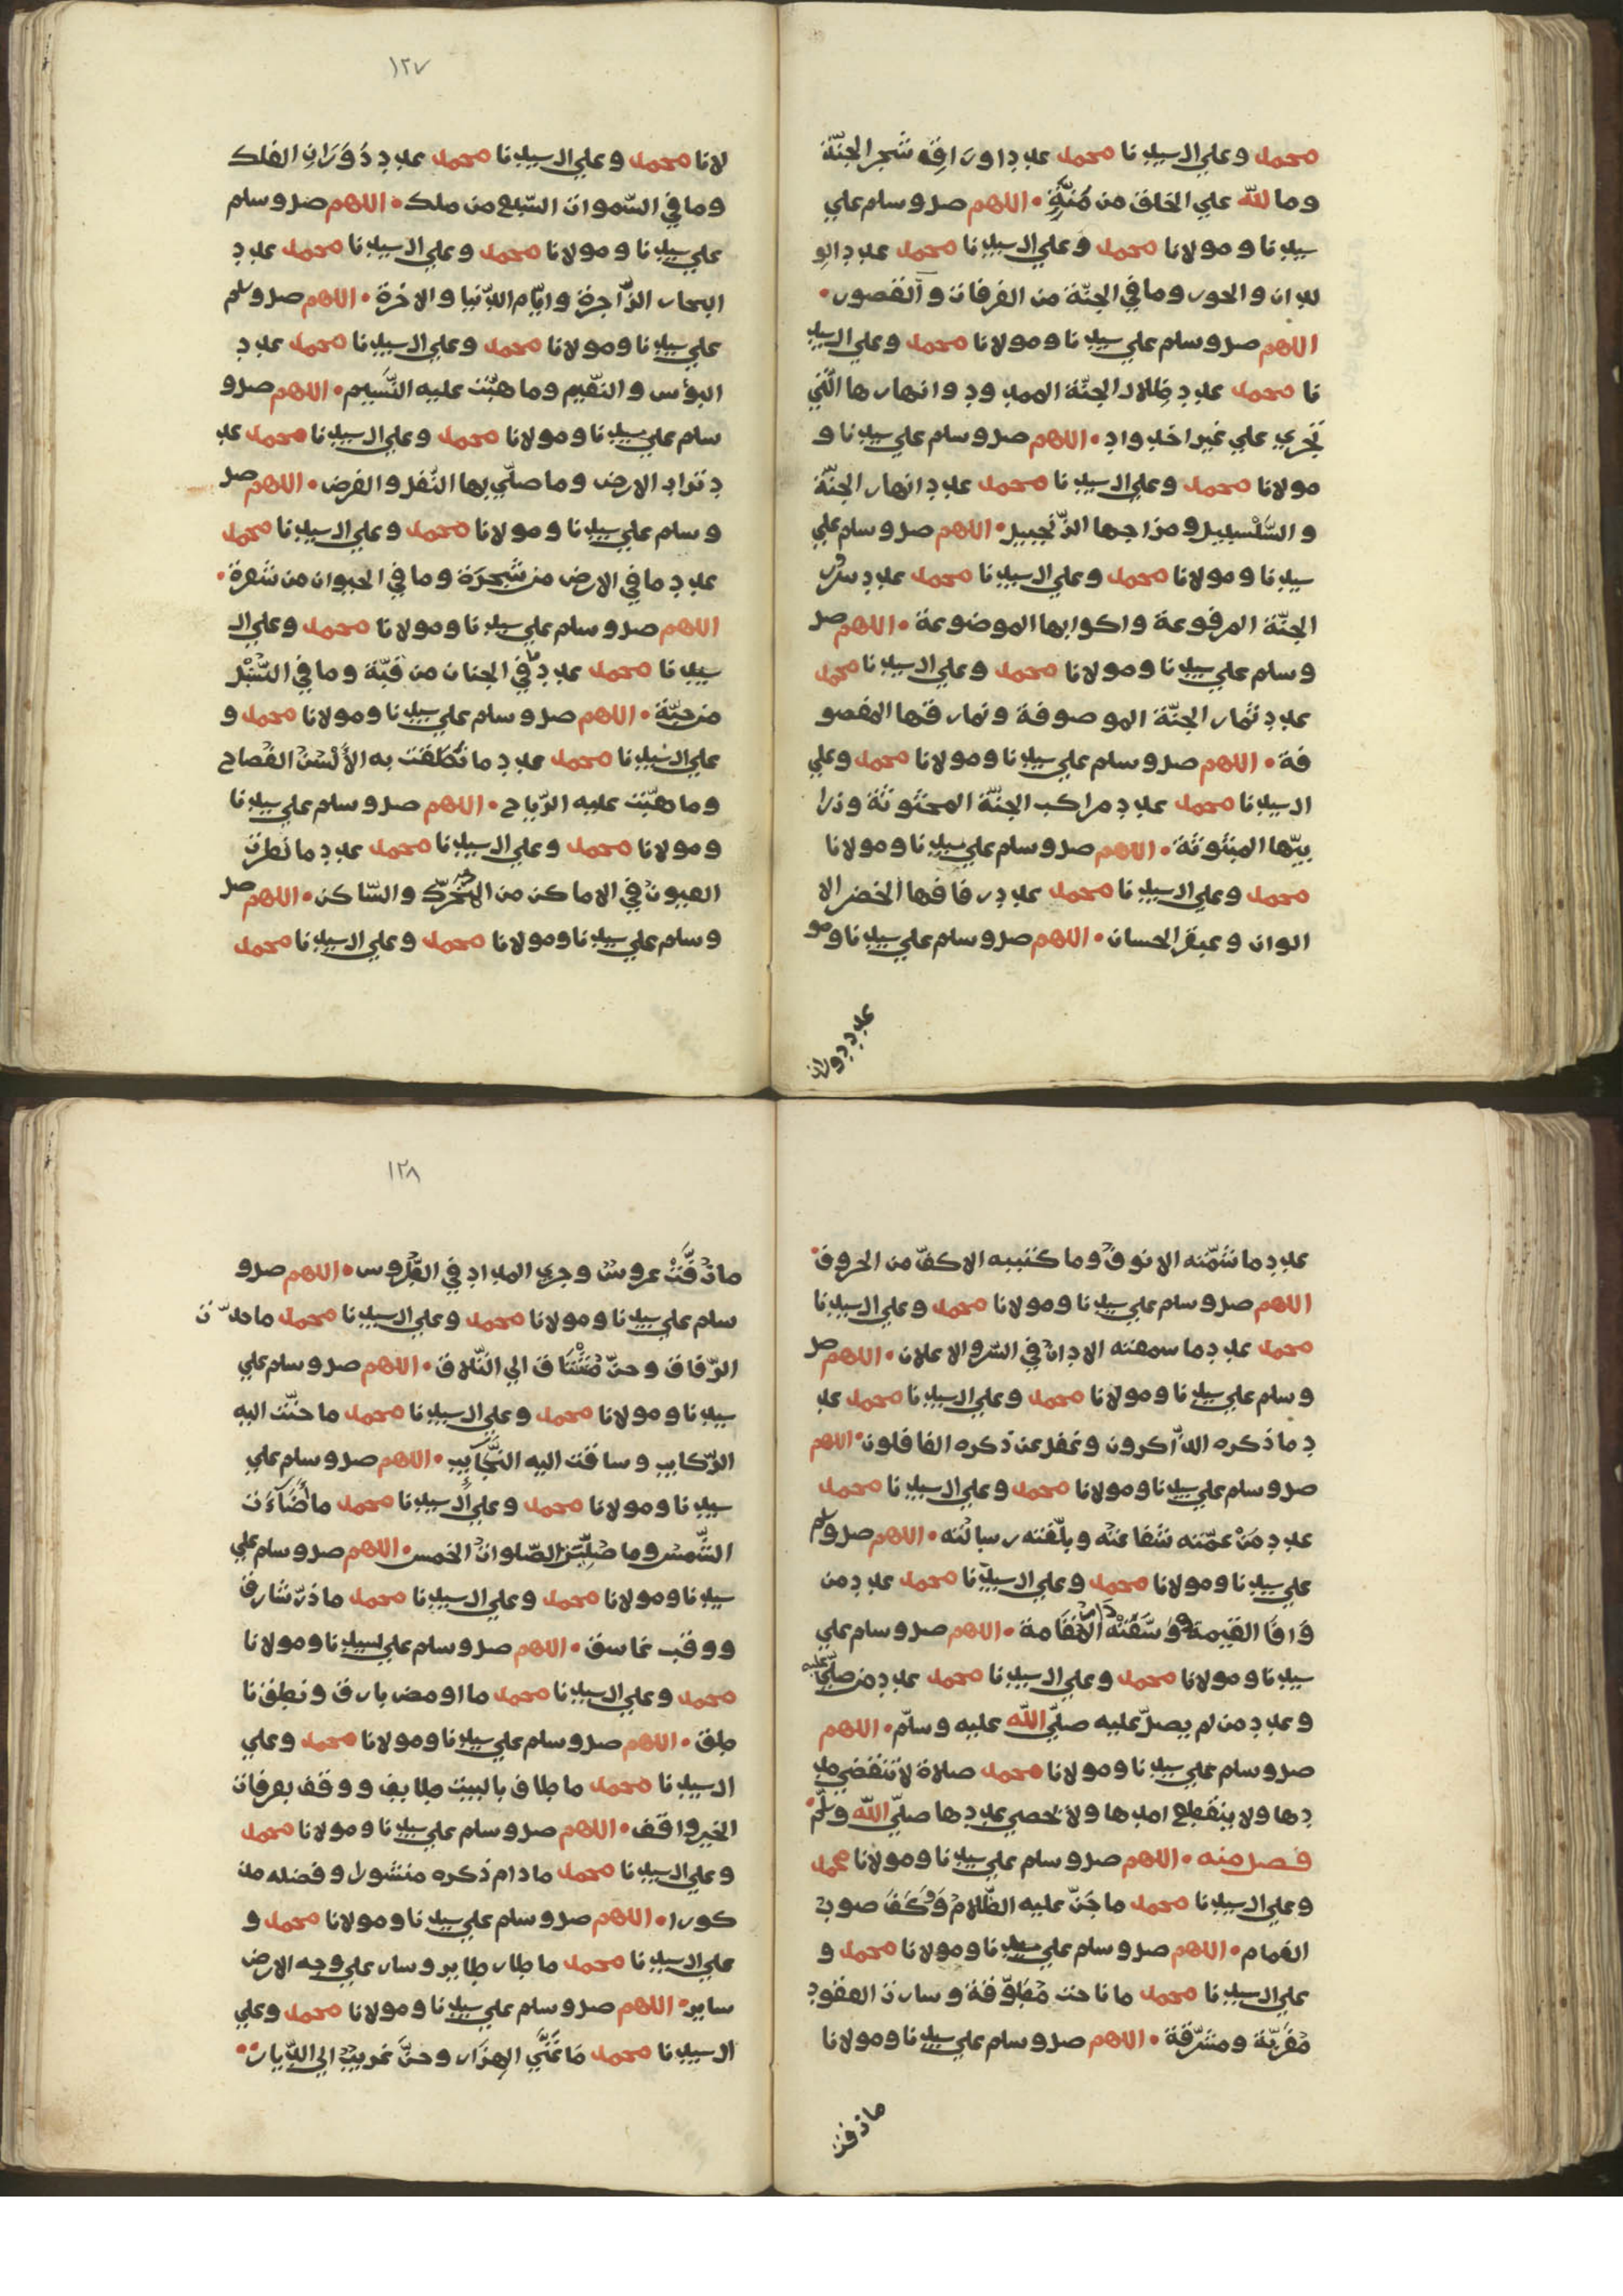 محمد وعلي ال سيدنا محمد عدد اوراق شجر الجنّة
وما لله علي الخلق من مُنَّةٍ • اللهم صل وسلم علي
سيدنا ومولانا محمد وعلي ال سيدنا محمد عدد الو
لدان والحور وما في الجنّة من الغرفات والقصور •
اللهم صل وسلم علي سيدنا ومولانا محمد وعلي ال سيد
نا محمد عدد ظلال الجنّة الممدود وانهارها الّتي
تجري علي غير اخدواد • اللهم صل وسلم علي سيدنا و
مولانا محمد وعلي ال سيدنا محمد عدد انهار الجنّة
والسّلسبيل ومزاجها الزّنجبيل • اللهم صل وسلم علي
سيدنا ومولانا محمد وعلي ال سيدنا محمد عدد سرر
الجنّة المرفوعة واكوابها الموضوعة • اللهم صل
وسلم علي سيدنا ومولانا محمد وعلي ال سيدنا محمد
عدد ثمار الجنّة الموصوفة ونمارقها المصفو
فة • اللهم صل وسلم علي سيدنا ومولانا محمد وعلي
ال سيدنا محمد عدد مراكب الجنّة المحثوثة وزرا
بيّها المبثوثة • اللهم صل وسلم علي سيدنا ومولانا
محمد وعلي ال سيدنا محمد عدد رفافها الخضر الا
الوان وعبقر الحسان • اللهم صل وسلم علي سيدنا ومو
عدد دوران
١٢٧
لانا محمد وعلي ال سيدنا محمد عدد دَوَرَانِ الفلك
وما في السّموات السّبع من ملك • اللهم صل وسلم
علي سيدنا ومولانا محمد وعلي ال سيدنا محمد عدد
البحار الزّاجرة وايّام الدّنيا والاخرة • اللهم صل وسلم
علي سيدنا ومولانا محمد وعلي ال سيدنا محمد عدد
البؤس والنّعيم وما هبّت عليه النّسيم • اللهم صل و
سلم علي سيدنا ومولانا محمد وعلي ال سيدنا محمد عد
د تراب الارض وما صلّي بها النّفل والفرض • اللهم صل
وسلم علي سيدنا ومولانا محمد وعلي ال سيدنا محمد
عدد ما في الارض من شَجرَة وما في الحيوان من شَعرة •
اللهم صل وسلم علي سيدنا ومولانا محمد وعلي ال
سيدنا محمد عدد ما في الجنان من قبّة وما في السّنبل
من حبّة • اللهم صل وسلم علي سيدنا ومولانا محمد و
علي ال سيدنا محمد عدد ما نطقت به الألسن الفصاح
وما هبّت عليه الرّياح • اللهم صل وسلم علي سيدنا
ومولانا محمد وعلي ال سيدنا محمد عدد ما نظرت
العيون في الاماكن من المتحرّك والسّاكن • اللهم صل
وسلم علي سيدنا ومولانا محمد وعلي ال سيدنا محمد
عدد ما شمّته الانوف وما كتبه الاكفّ من الحروف •
اللهم صل وسلم علي سيدنا ومولانا محمد وعلي ال سيدنا
محمد عدد ما سمعته الاذان في السّر والاعلان • اللهم صل
وسلم علي سيدنا ومولانا محمد وعلي ال سيدنا محمد عد
د ما ذكره الذّاكرون وغفل عن ذكره الغافلون • اللهم
صل وسلم علي سيدنا ومولانا محمد وعلي ال سيدنا محمد
عدد مَنْ عمّته شفاعته وبلّغته رسالته • اللهم صل وسلم
علي سيدنا ومولانا محمد وعلي ال سيدنا محمد عدد من
وَافَا القيمة • اللهم صل وسلم علي
سيدنا ومولانا محمد وعلي ال سيدنا محمد عدد من صلّي عليه
وعدد من لم يصلّ عليه صلّي الله عليه وسلّم • اللهم
صل وسلم علي سيدنا ومولانا محمد صلاة لا تنقضي مد
دها ولا ينقطع امدها ولا يحصي عددها صلّي الله وسلّم •
فصل منه • اللهم صل وسلم علي سيدنا ومولانا محمد
وعلي ال سيدنا محمد ما جَنّ عليه الظّلام وَوَكَفَ صوب
الغمام • اللهم صل وسلم علي سيدنا ومولانا محمد و
علي ال سيدنا محمد ما ناحت مُطوّقة وسارت العقود
مُغرِبّة ومشرّقة • اللهم صل وسلم علي سيدنا ومولانا
ما زفت
١٢٨
ما زفَّتْ عروسٌ وجري المداد في الطّروس • اللهم صل و
سلم علي سيدنا ومولانا محمد وعلي ال سيدنا محمد ما مدّت
الرّفاق وحنّ مُشْتَاق الي التّلاق • اللهم صل وسلم علي
سيدنا ومولانا محمد وعلي ال سيدنا محمد ما حنّت اليه
الرّكايب وساقت اليه النَّجَآيب • اللهم صل وسلم علي
سيدنا ومولانا محمد وعلي ال سيدنا محمد ما أَضَآءَت
الشّمس وما صُلِّيَتِ الصّلوات الخمس • اللهم صل وسلم علي
سيدنا ومولانا محمد وعلي ال سيدنا محمد ما ذرّ شارق
ووقب غاسق • اللهم صل وسلم علي سيدنا ومولانا
محمد وعلي ال سيدنا محمد ما اومض بارق ونطق نا
طق • اللهم صل وسلم علي سيدنا ومولانا محمد وعلي
ال سيدنا محمد ما طاف بالبيت طايف ووقف بعرفات
الخير واقف • اللهم صل وسلم علي سيدنا ومولانا محمد
وعلي ال سيدنا محمد ما دام ذكره منشورا وفضله مذ
كورا • اللهم صل وسلم علي سيدنا ومولانا محمد و
علي ال سيدنا محمد ما طار طاير وسار علي وجه الارض
ساير • اللهم صل وسلم علي سيدنا ومولانا محمد وعلي
ال سيدنا محمد مَا غَنَّي الهزَار وحنَّ غريب الي الدّيار ••